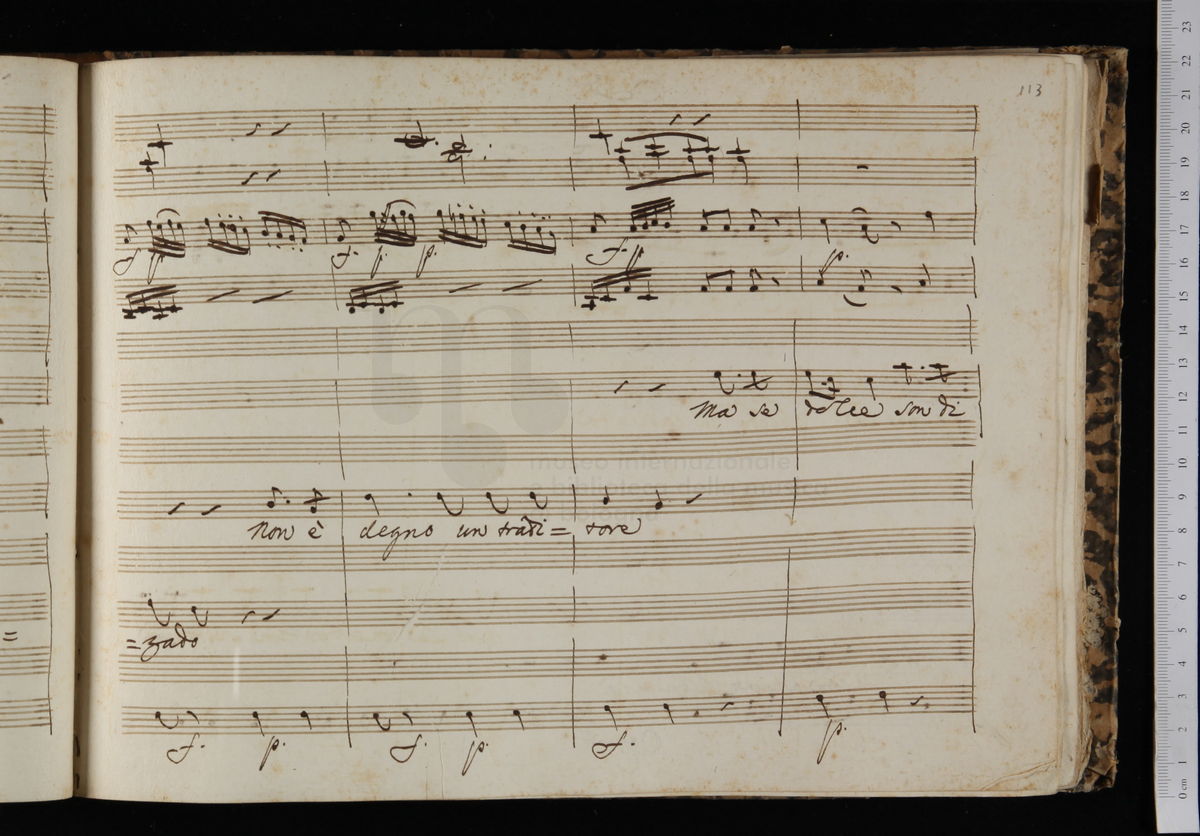 113
f. p. f. p. p. f. p p.
Ma se dolce son di
Non è degno un tradi= tore
=zado
f. p. f. p. f. p.
museo internazionale
23
22
21
20
19
18
17
16
15
14
13
12
11
10
9
8
7
6
5
4
3
2
1
0 cm
=